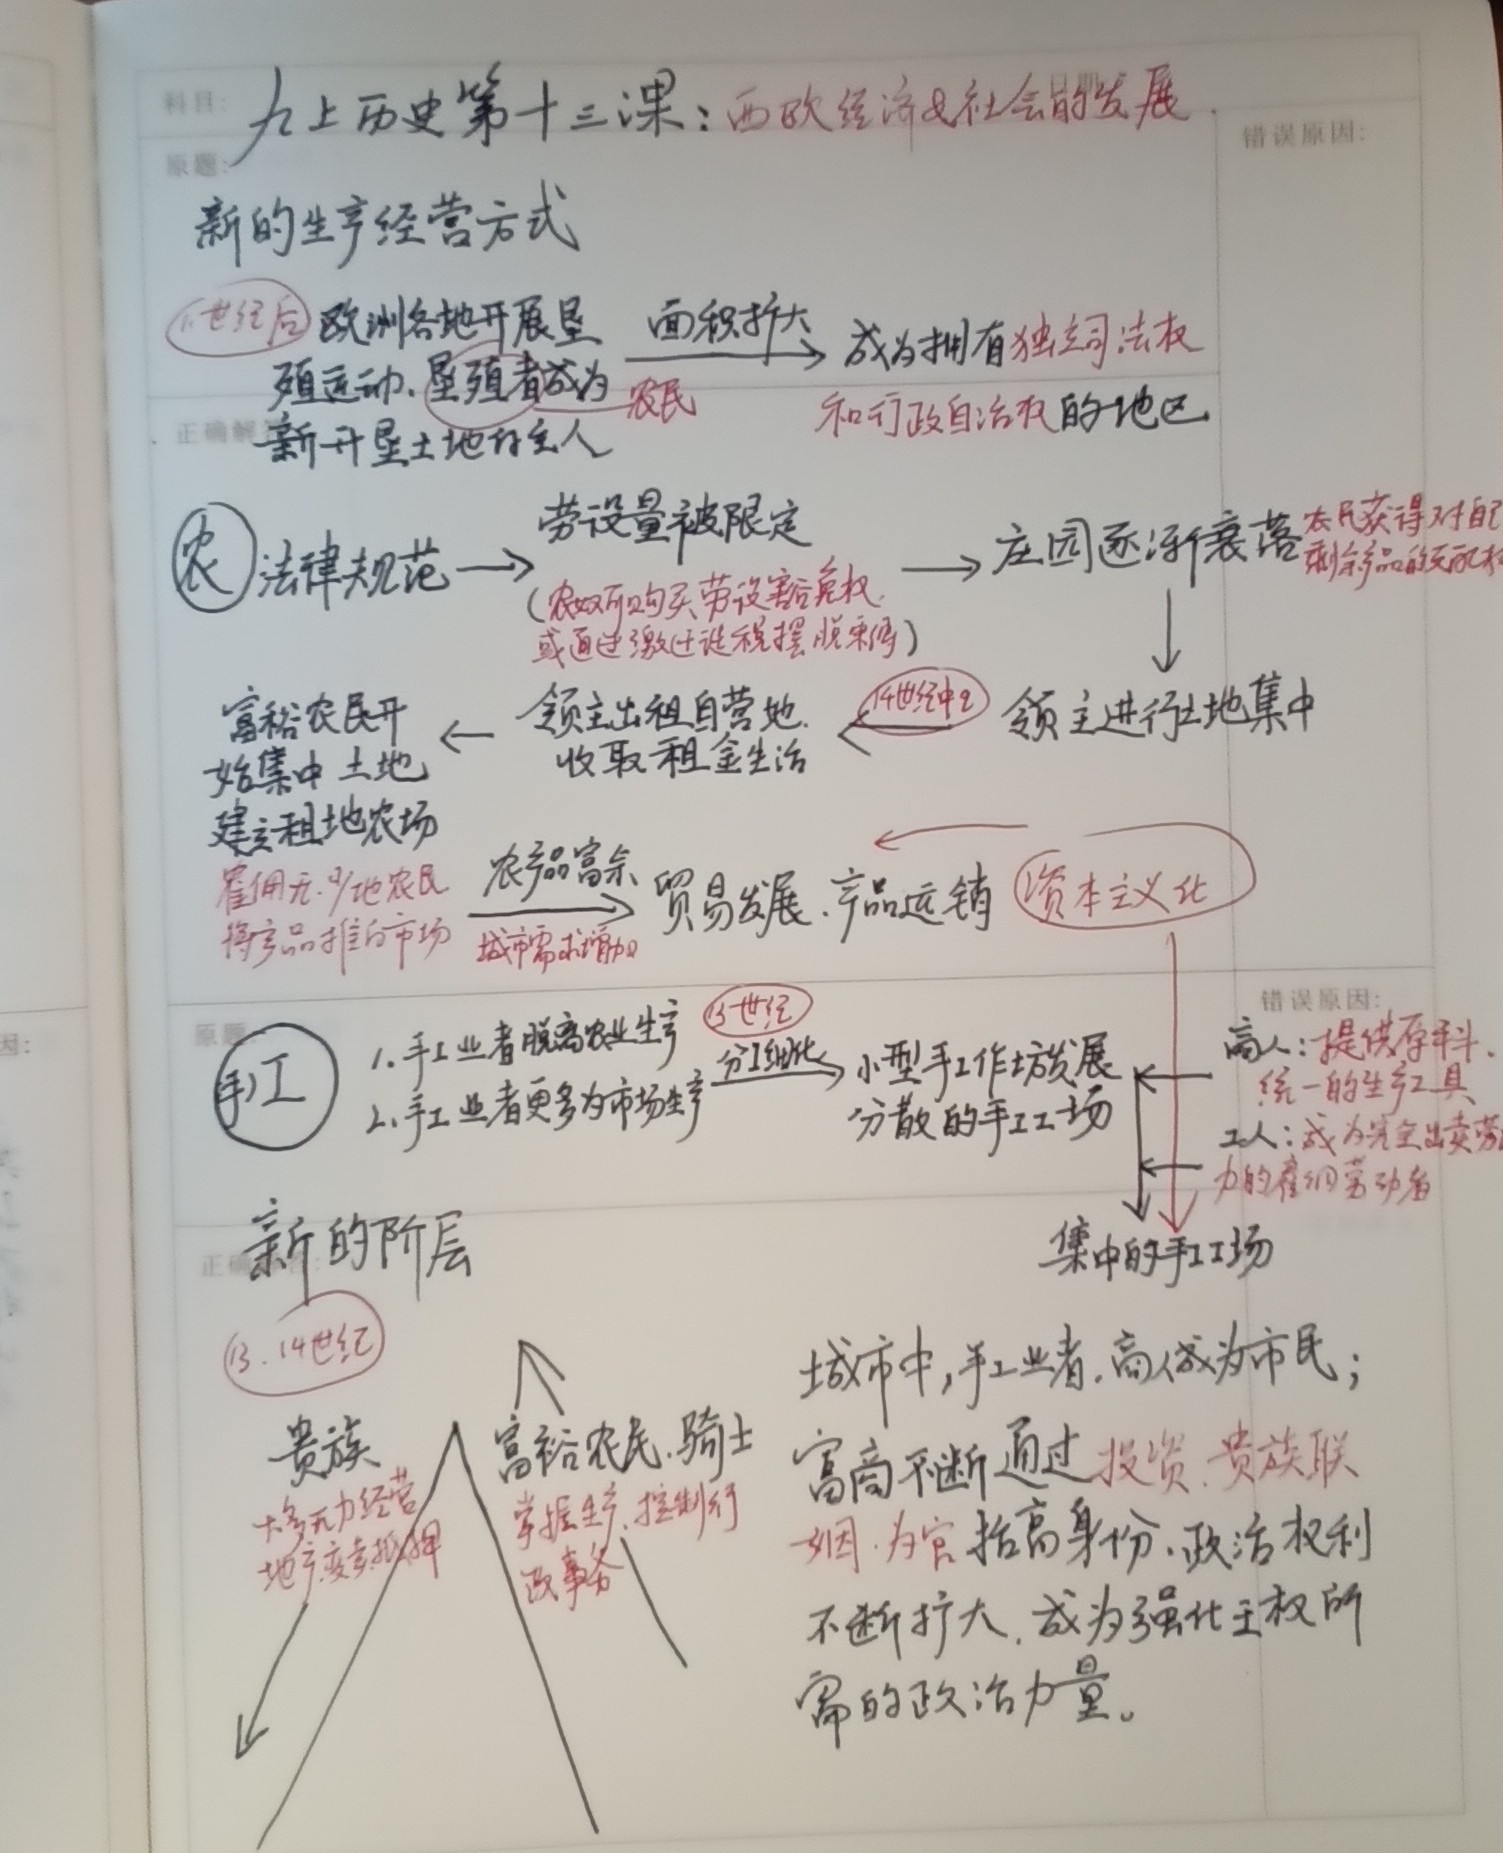 科目:
九上历史第十三课:西欧经济&社会的发展
原题:
错误原因:
新的生产经营方式
世纪后 欧洲各地开展垦
殖运动、垦殖者成为
新开垦土地的主人
农民
面积扩大
成为拥有独立司法权
和行政自治权的地区
正确解
农
法律规范
劳役量被限定
(农奴可购买劳役豁免权、
或通过缴迁徙税摆脱束缚)
庄园逐渐衰落
农民获得对自己
剩余产品的支配权
领主进行土地集中
14世纪中
领主出租自营地、
收取租金生活
富裕农民开
始集中土地
建立租地农场
雇佣无、少地农民
将产品推向市场
农产品富余
城市需求增加
贸易发展、产品远销
资本主义化
原题:
错误原因:
手工
1.手工业者脱离农业生产
2.手工业者更多为市场生产
13世纪
分工细化
小型手工作坊发展
分散的手工工场
商人:提供原料、
统一的生产工具
工人:成为完全出卖劳
力的雇佣劳动者
集中的手工工场
正确
新的阶层
13、14世纪
贵族
大多无力经营
地产,变卖抵押
富裕农民、骑士
掌握生产、控制行
政事务
城市中,手工业者、商人成为市民;
富商不断通过投资、贵族联
姻、为官抬高身份、政治权利
不断扩大、成为强化王权所
需的政治力量。